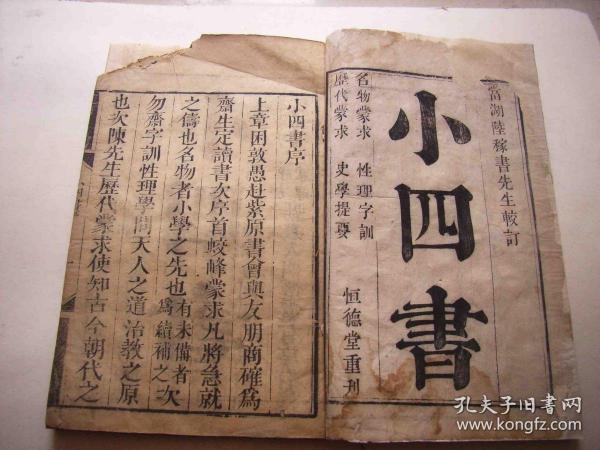 當湖陸稼書先生較訂
小四書
名物蒙求 性理字訓
歷代蒙求 史學提要
恒德堂重刊
小四書序
上章困敦愚赴紫原書會與友朋商確爲
齋生定讀書次序首蛟峰蒙求凡將急就
之儔也名物者小學之先也有未備者爲續補之次
勿齋字訓性理學問天人之道治教之原
也次陳先生歷代蒙求使知古今朝代之
孔夫子旧書网
www.kongfz.com